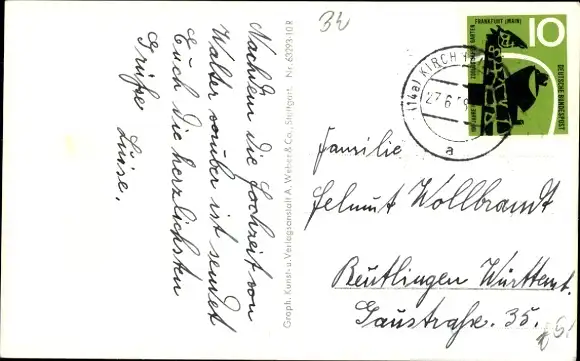 Nachdem die Hochzeit von
Walter vorüber ist sendet
Euch die herzlichsten
Grüße
Luise.
Graph. Kunst- u. Verlagsanstalt A. Weber & Co., Stuttgart. Nr. 63293-10 R
34
(14a) KIRCH
27.6.
a
FRANKFURT (MAIN)
10
DEUTSCHE BUNDESPOST
Familie
Helmut Wollbrandt
Reutlingen Württemt.
Gaustraße. 35.